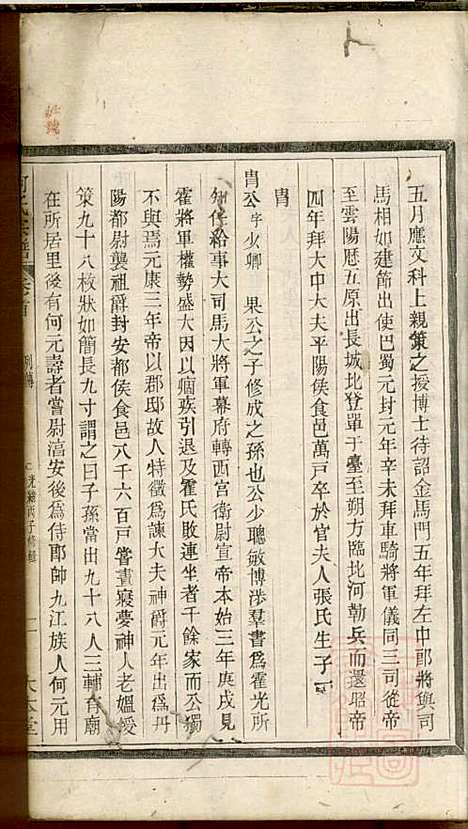 五月應文科上親策之授博士待詔金馬門五年拜左中郎將與司
馬相如建節出使巴蜀元封元年辛未拜車騎將軍儀同三司從帝
至雲陽歷五原出長城北登單于臺至朔方臨北河勒兵而還昭帝
四年拜大中大夫平陽侯食邑萬戸卒於官夫人張氏生子一
胄
胄公字少卿 果公之子修成之孫也公少聰敏博渉羣書爲霍光所
知任給事大司馬大將軍幕府轉西宮衛尉宣帝本始三年庚戌見
霍將軍權勢盛大因以痼疾引退及霍氏敗連坐者千餘家而公獨
不與焉元康三年帝以郡邸故人特徵爲諫大夫神爵元年出爲丹
陽都尉襲祖爵封安都侯食邑八千六百戸嘗晝寢夢神人老嫗授
策九十八枚狀如簡長九寸謂之曰子孫當出九十八人三輔有廟
在所居里後有何元壽者嘗尉滆安後爲侍郎帥九江族人何元用
何氏宗譜 卷首 列傳 光緒丙子修輯 一 大本堂